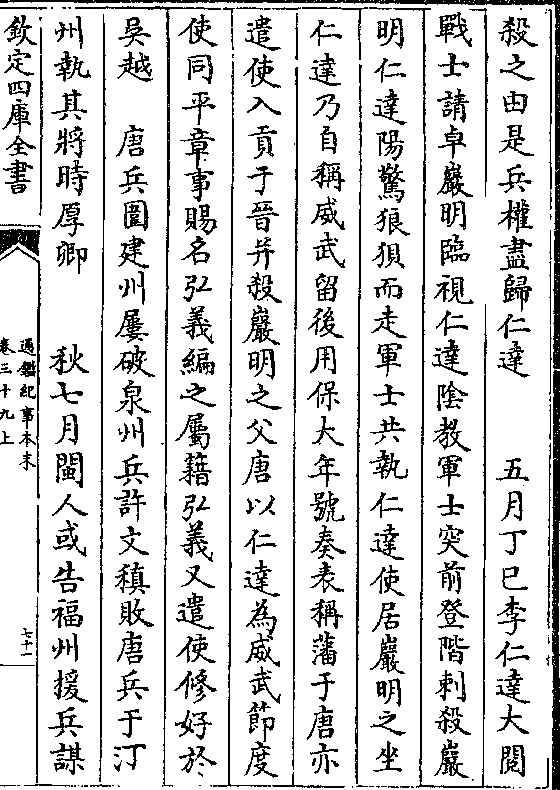 殺之由是兵權盡歸仁達　　五月丁巳李仁達大閱
戰士請卓巖明臨視仁達陰教軍士突前登階刺殺巖
明仁達陽驚狼狽而走軍士共執仁達使居巖明之坐
仁達乃自稱威武留後用保大年號奏表稱藩于唐亦
遣使入貢于晉并殺巖明之父唐以仁達為威武節度
使同平章事賜名弘義編之屬籍弘義又遣使修好於
吳越　唐兵圍建州屢破泉州兵許文稹敗唐兵于汀
州執其將時厚卿　　秋七月閩人或告福州援兵謀
欽定四庫全書
通鑑紀事本末
卷三十九上
七十一